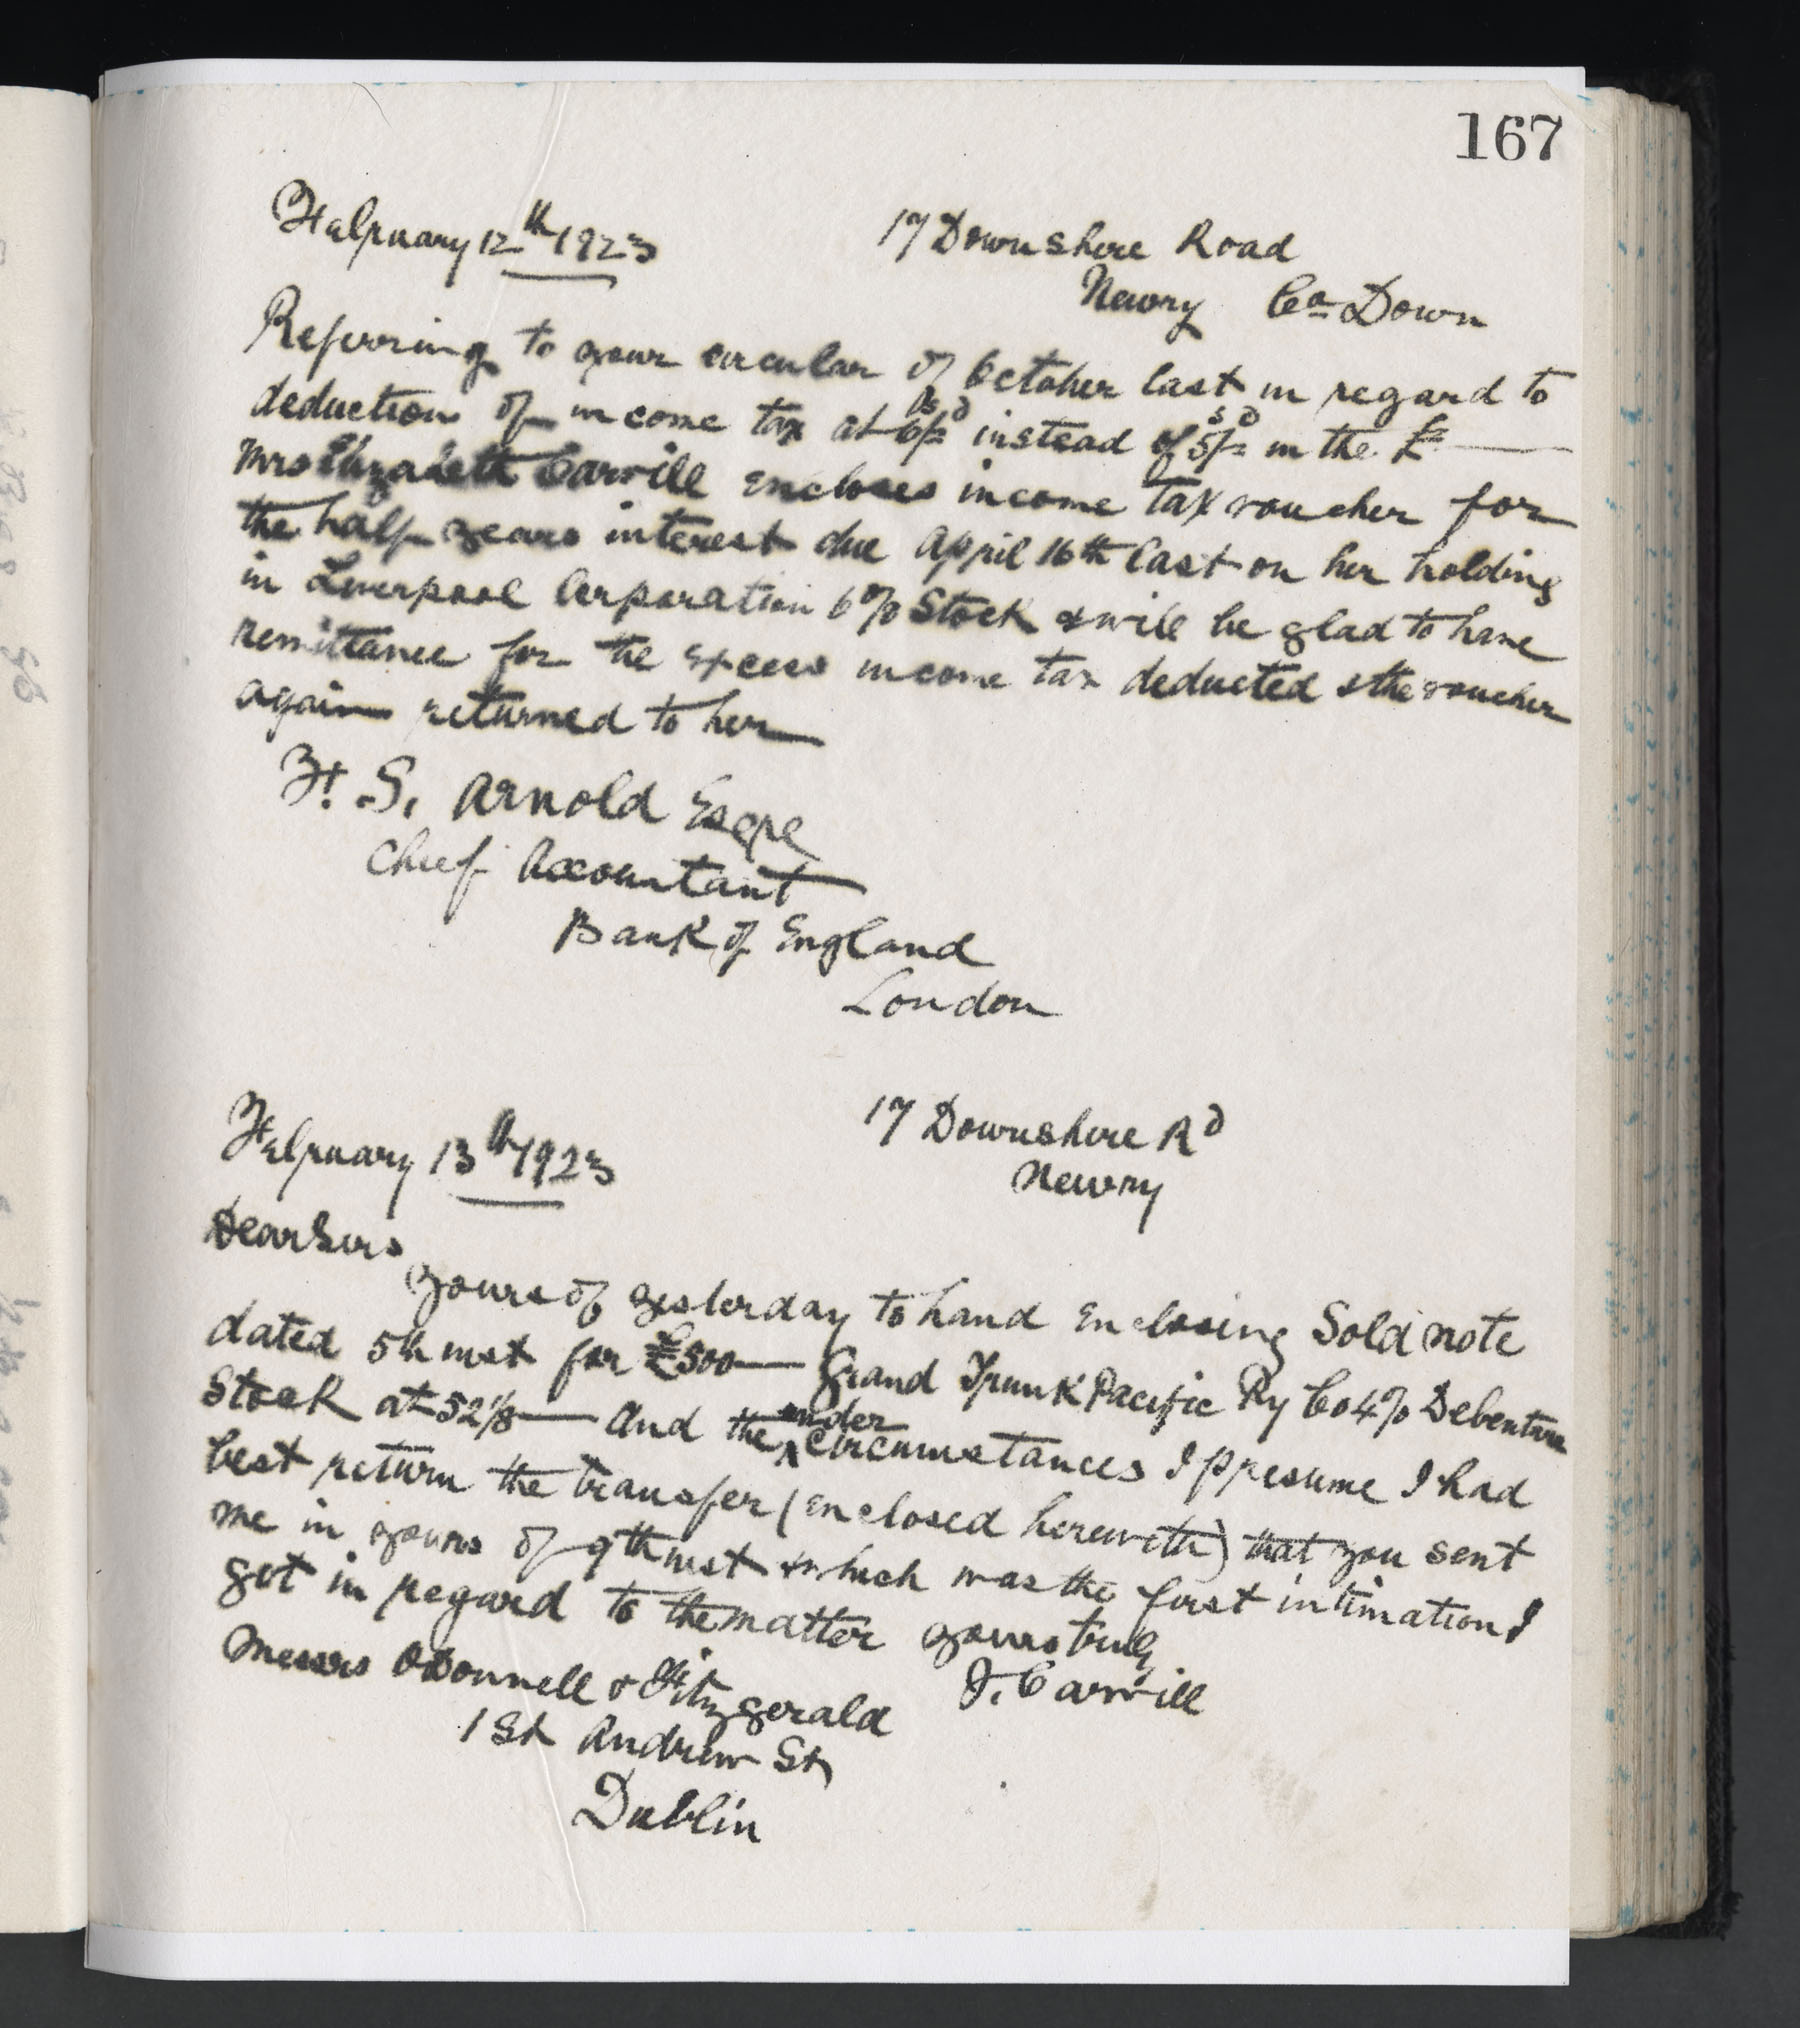 167
February 12th 1923
17 Downshire Road
Newry Co Down
Referring to your circular of October last in regard to
deduction of income tax at 6s/=d instead of 5s/=d in the £
Mrs Elizabeth Carvill encloses income tax voucher for
the half years interest due April 16th last on her holding
in Liverpool Corporation 6% Stock & will be glad to have
remittance for the excess income tax deducted & the voucher
again returned to her
F. S. Arnold Esqre
Chief Accountant
Bank of England
London
February 13th 1923
17 Downshire Rd
Newry
Dear Sirs
Yours of yesterday to hand enclosing Sold note
dated 5th inst for £500 Grand Trunk Pacific Ry Co 4% Debenture
Stock at 52 1/8 And the under circumstances I presume I had
best return the transfer (enclosed herewith) that you sent
me in yours of 9th inst & which was the first intimation I
got in regard to the matter yours truly
J. Carvill
Messrs O'Donnell & Fitzgerald
1 St Andrew St
Dublin